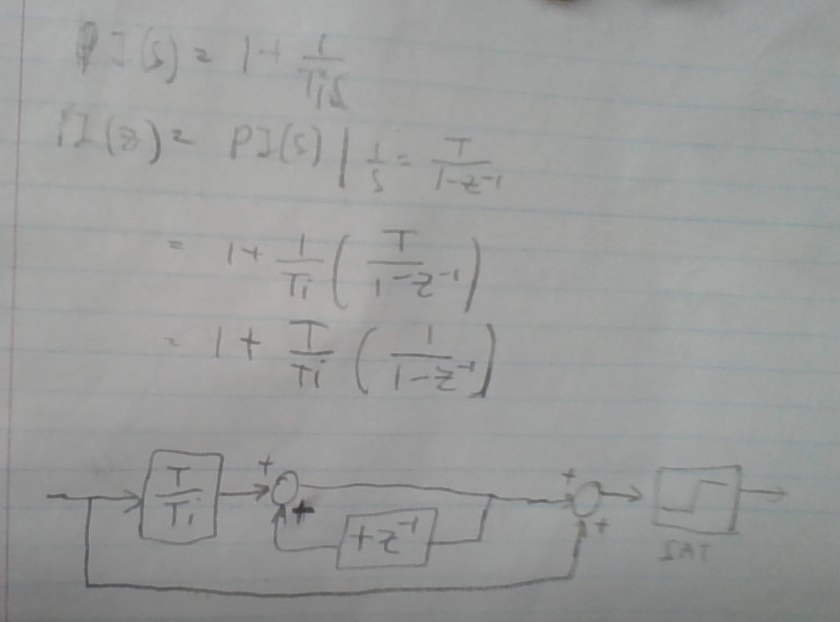 PI(s) = 1 + 1/(Tis)
PI(z) = PI(s) | 1/s = T/(1-z⁻¹)
= 1 + 1/Ti ( T/(1-z⁻¹) )
= 1 + T/Ti ( 1/(1-z⁻¹) )
T/Ti + + +z⁻¹ + +
SAT